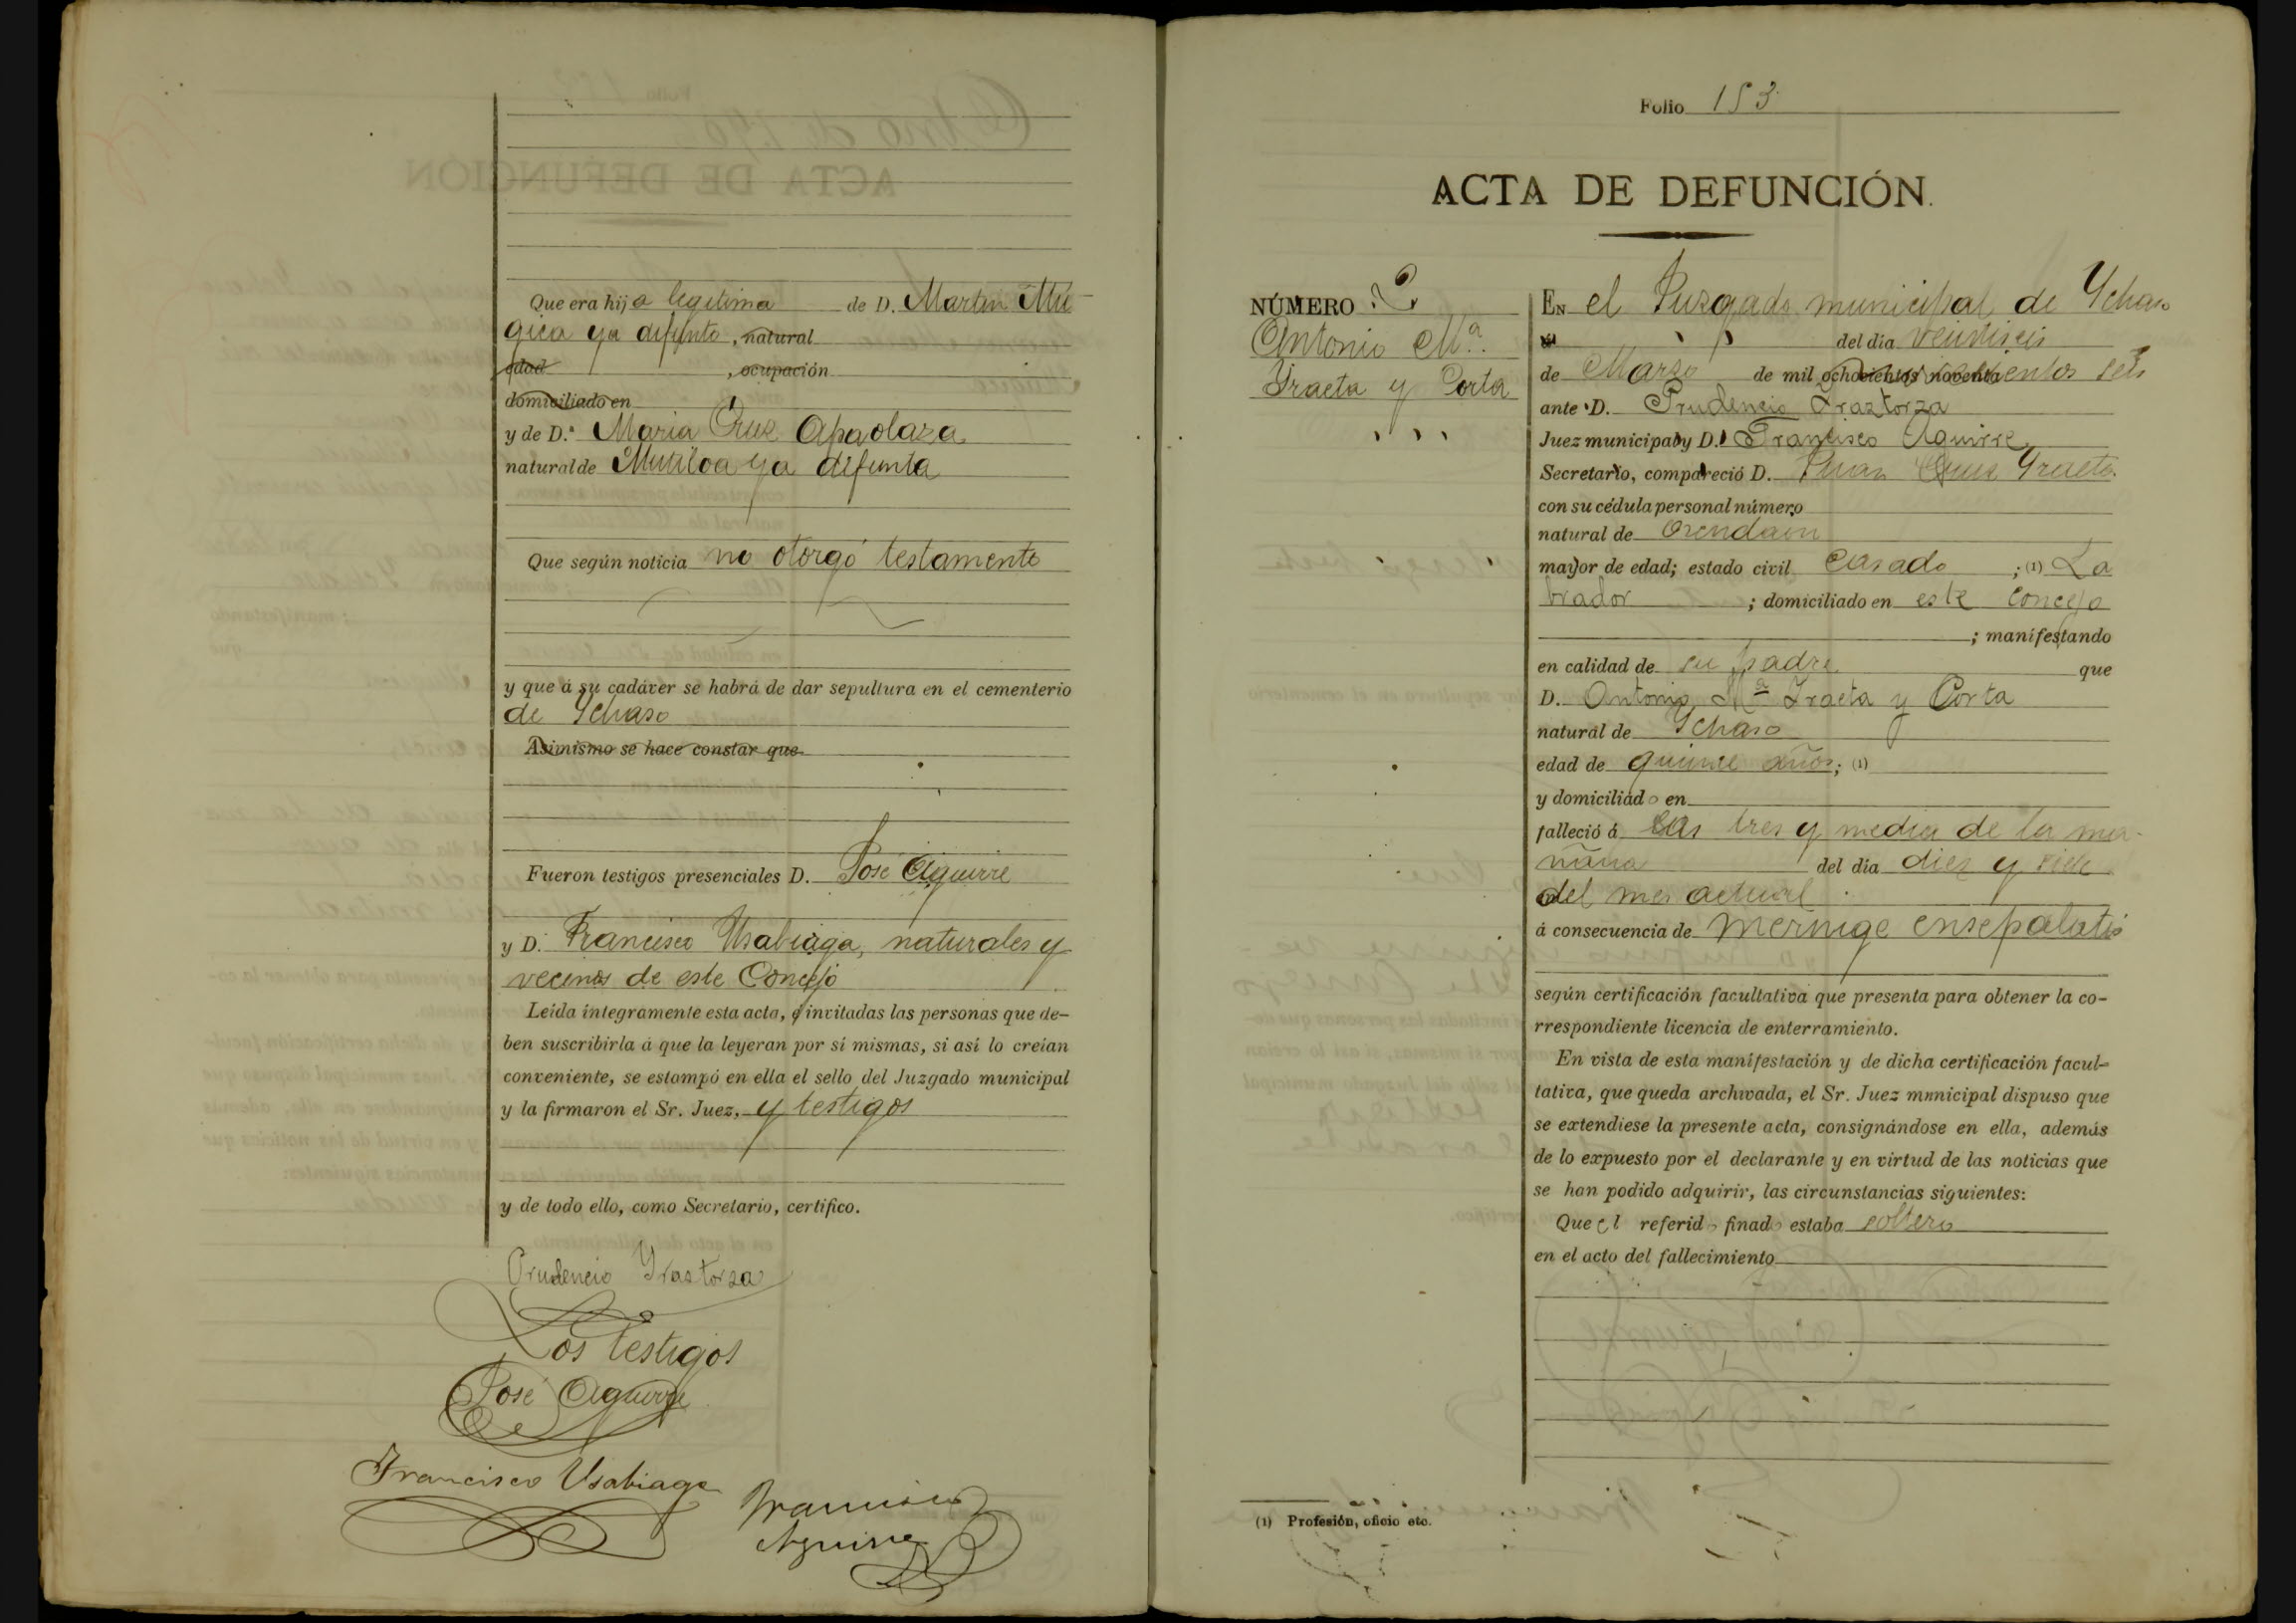 Que era hija legitima de D. Martin Mú-
gica ya difunto, natural
edad , ocupación
domiciliado en
y de D.ª Maria Cruz Apaolaza
natural de Mutiloa ya difunta
Que según noticia no otorgó testamento
y que á su cadáver se habrá de dar sepultura en el cementerio
de Ychaso
Asimismo se hace constar que
Fueron testigos presenciales D. José Aguirre
y D. Francisco Usabiaga, naturales y
vecinos de este Concejo
Leída íntegramente esta acta, é invitadas las personas que de-
ben suscribirla á que la leyeran por sí mismas, si así lo creían
conveniente, se estampó en ella el sello del Juzgado municipal
y la firmaron el Sr. Juez, y testigos
y de todo ello, como Secretario, certifico.
Prudencio Yrastorza
Los testigos
José Aguirre
Francisco Usabiaga
Francisco
Aguirre
Folio 153
ACTA DE DEFUNCIÓN.
NÚMERO 2
Antonio M.ª
Yraeta y Corta
EN el Juzgado municipal de Ychaso
del día veintiseis
de Marzo de mil ochocientos noventa novecientos seis
ante D. Prudencio Yraztorza
Juez municipal y D. Francisco Aguirre
Secretario, compareció D. Juan Cruz Yraeta
con su cédula personal número
natural de Orendain
mayor de edad; estado civil Casado ; (1) La
brador ; domiciliado en este Concejo
; manifestando
en calidad de su padre que
D. Antonio Mª Iraeta y Corta
natural de Ychaso
edad de quince años; (1)
y domiciliado en
falleció á las tres y media de la ma-
ñana del día diez y siete
del mes actual
á consecuencia de meninge ensepalatis
según certificación facultativa que presenta para obtener la co-
rrespondiente licencia de enterramiento.
En vista de esta manifestación y de dicha certificación facul-
tativa, que queda archivada, el Sr. Juez municipal dispuso que
se extendiese la presente acta, consignándose en ella, además
de lo expuesto por el declarante y en virtud de las noticias que
se han podido adquirir, las circunstancias siguientes:
Que el referido finado estaba soltero
en el acto del fallecimiento
(1) Profesión, oficio etc.